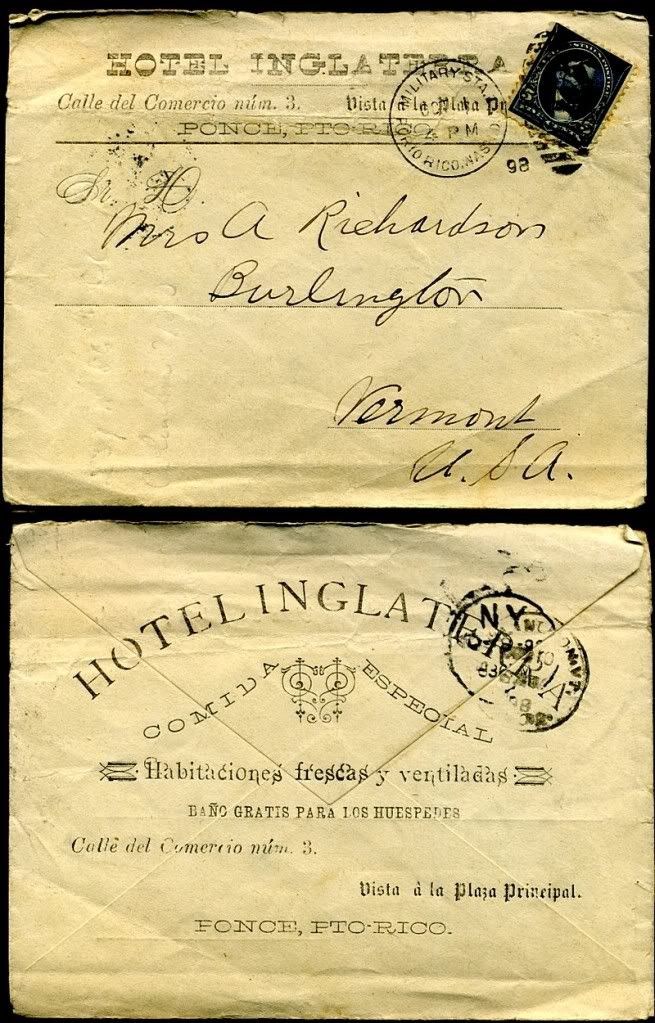 HOTEL INGLATERRA
Calle del Comercio núm. 3. Vista á la Plaza Pr
PONCE, PTO-RICO
MILITARY STA.
4 PM
PORTO RICO.
98
Sr. D.
Mrs A Richardson
Burlington
Vermont
U.S.A.
HOTEL INGLATERRA
NY
COMIDA ESPECIAL
Habitaciones frescas y ventiladas
BAÑO GRATIS PARA LOS HUESPEDES
Calle del Comercio núm. 3.
Vista á la Plaza Principal.
PONCE, PTO-RICO.